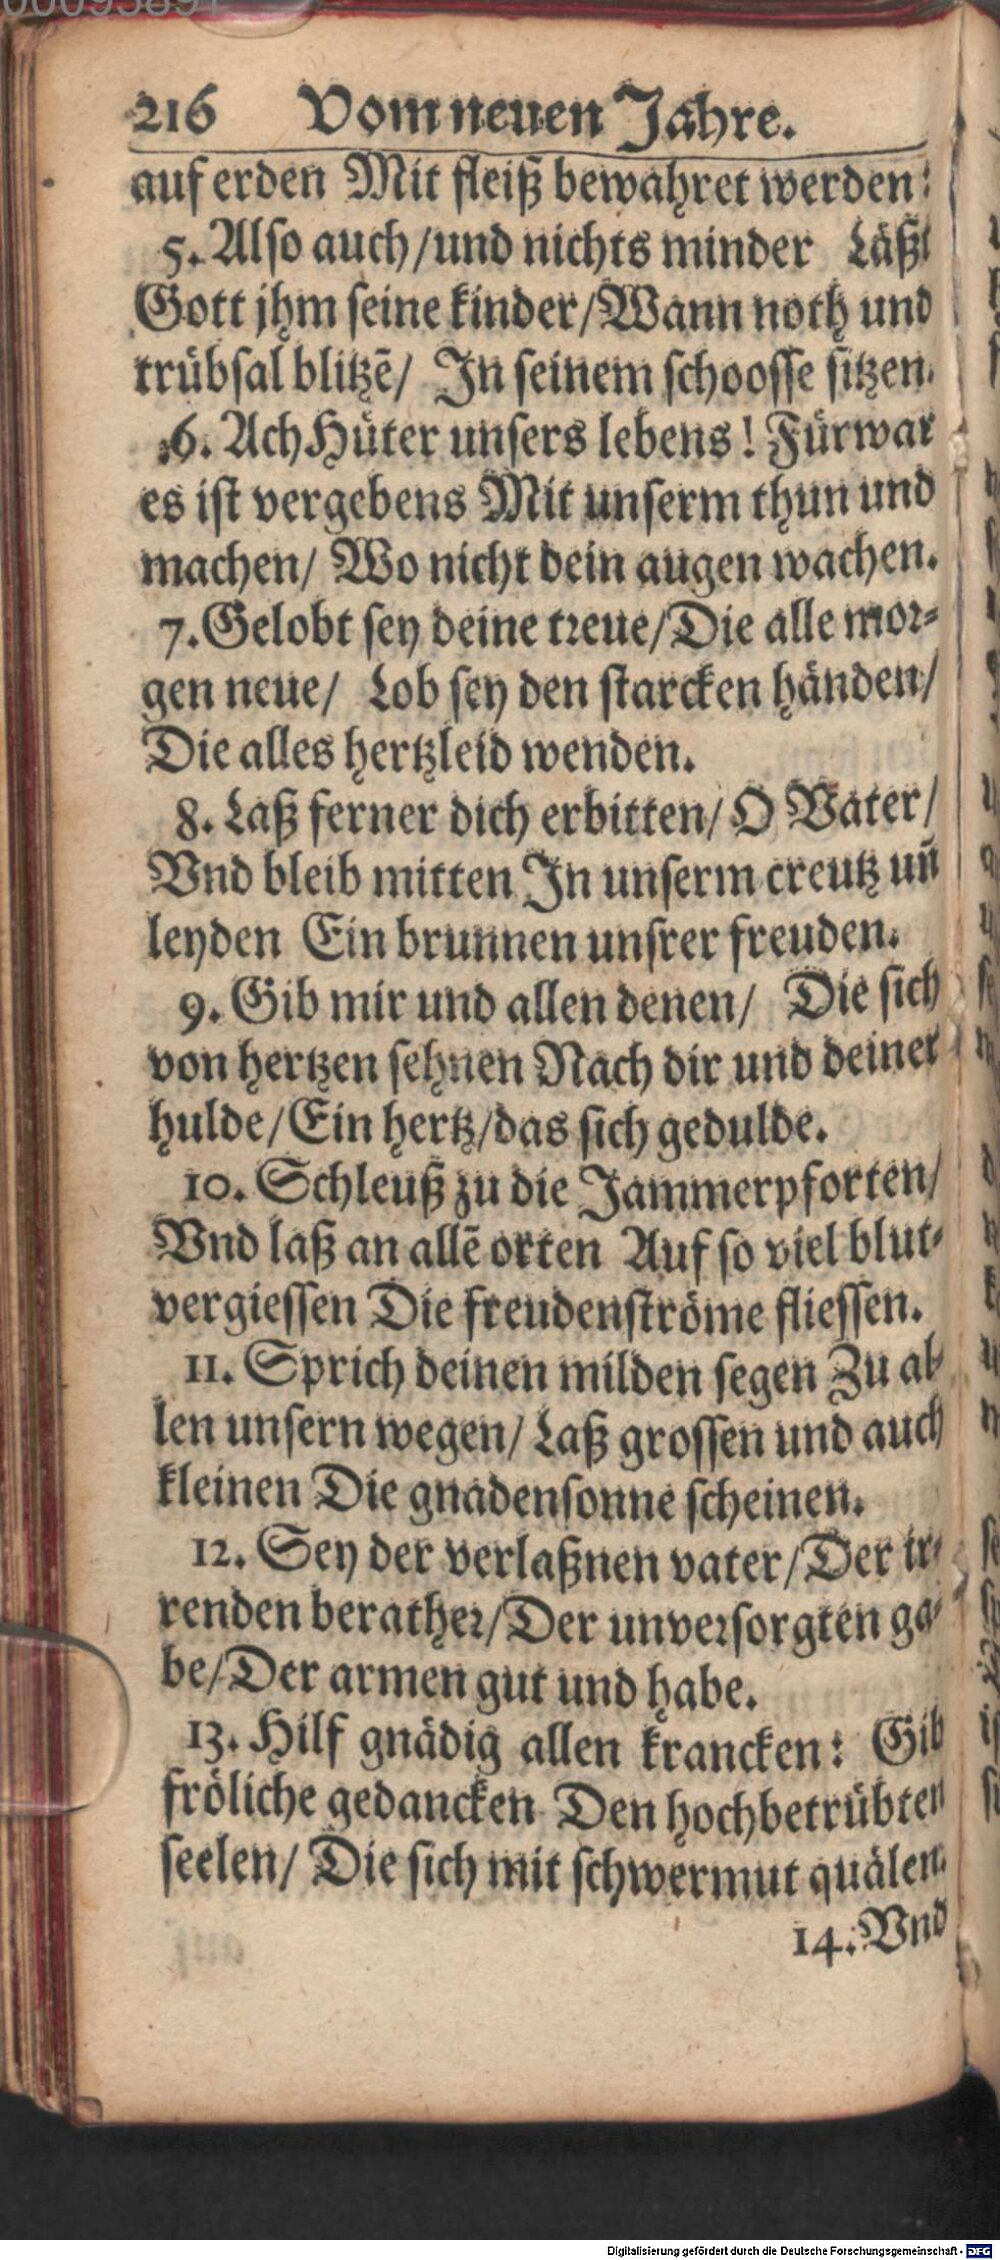 00095891
216 Vom neuen Jahre.
auf erden Mit fleiß bewahret werden:
5. Also auch/und nichts minder Läßt
Gott jhm seine kinder/Wann noth und
trübsal blitzē/ In seinem schoosse sitzen.
6. Ach Hüter unsers lebens! Fürwar
es ist vergebens Mit unserm thun und
machen/ Wo nicht dein augen wachen.
7. Gelobt sey deine treue/Die alle mor-
gen neue/ Lob sey den starcken händen/
Die alles hertzleid wenden.
8. Laß ferner dich erbitten/ O Vater/
Vnd bleib mitten In unserm creutz uñ
leyden Ein brunnen unsrer freuden.
9. Gib mir und allen denen/ Die sich
von hertzen sehnen Nach dir und deiner
hulde/Ein hertz/das sich gedulde.
10. Schleuß zu die Jammerpforten/
Vnd laß an allē orten Auf so viel blut-
vergiessen Die freudenströme fliessen.
11. Sprich deinen milden segen Zu al-
len unsern wegen/ Laß grossen und auch
kleinen Die gnadensonne scheinen.
12. Sey der verlaßnen vater/Der ir-
renden berather/Der unversorgten ga-
be/Der armen gut und habe.
13. Hilf gnädig allen krancken: Gib
fröliche gedancken Den hochbetrübten
seelen/ Die sich mit schwermut quälen.
14. Vnd
Digitalisierung gefördert durch die Deutsche Forschungsgemeinschaft - DFG